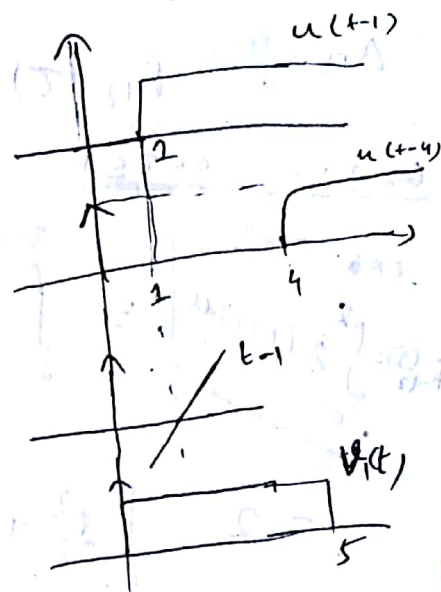 u(t-1)
1
u(t-4)
1
4
t-1
V₁(t)
5